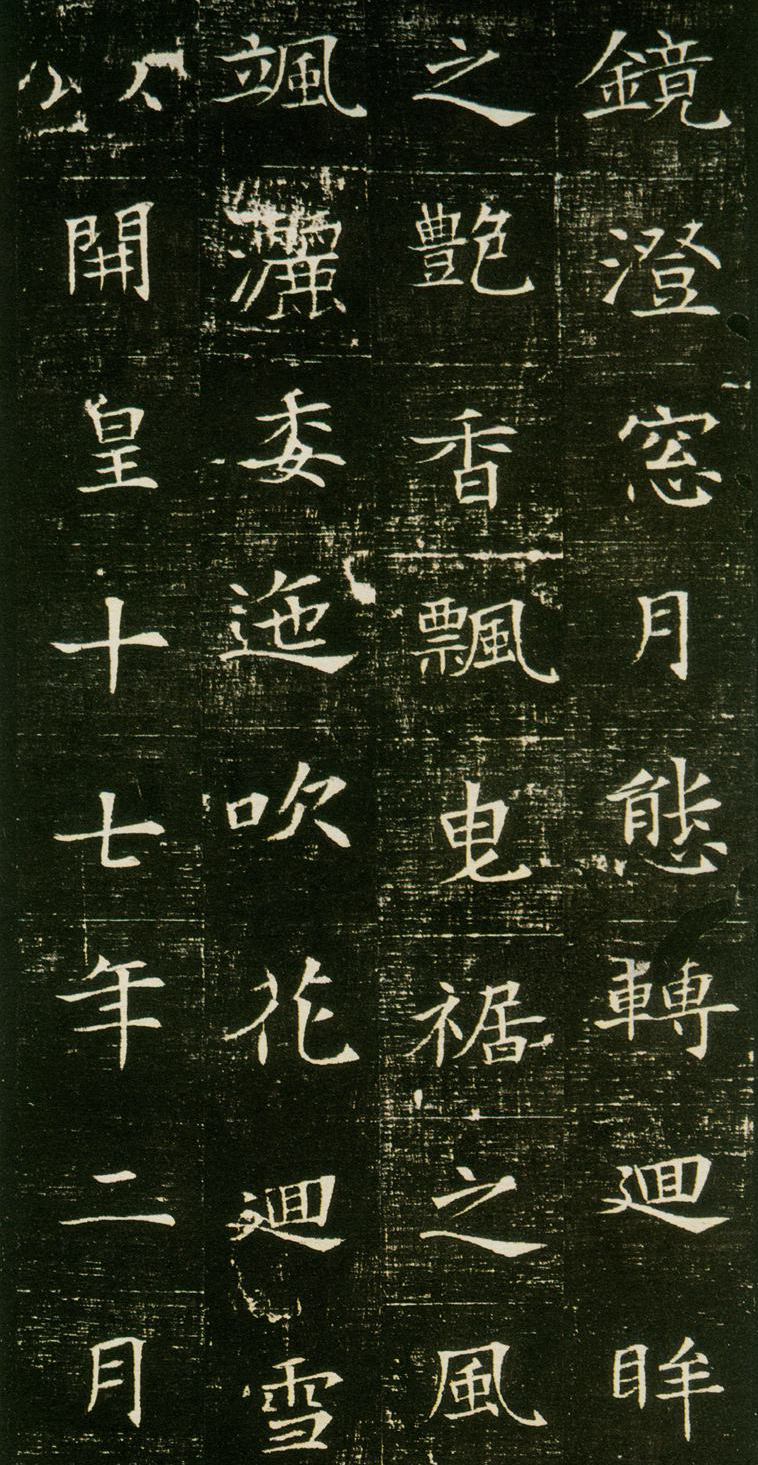 鏡澄窓月態轉迴眸
之艷香飄曵裾之風
颯灑委迤吹花迴雪
以開皇十七年二月